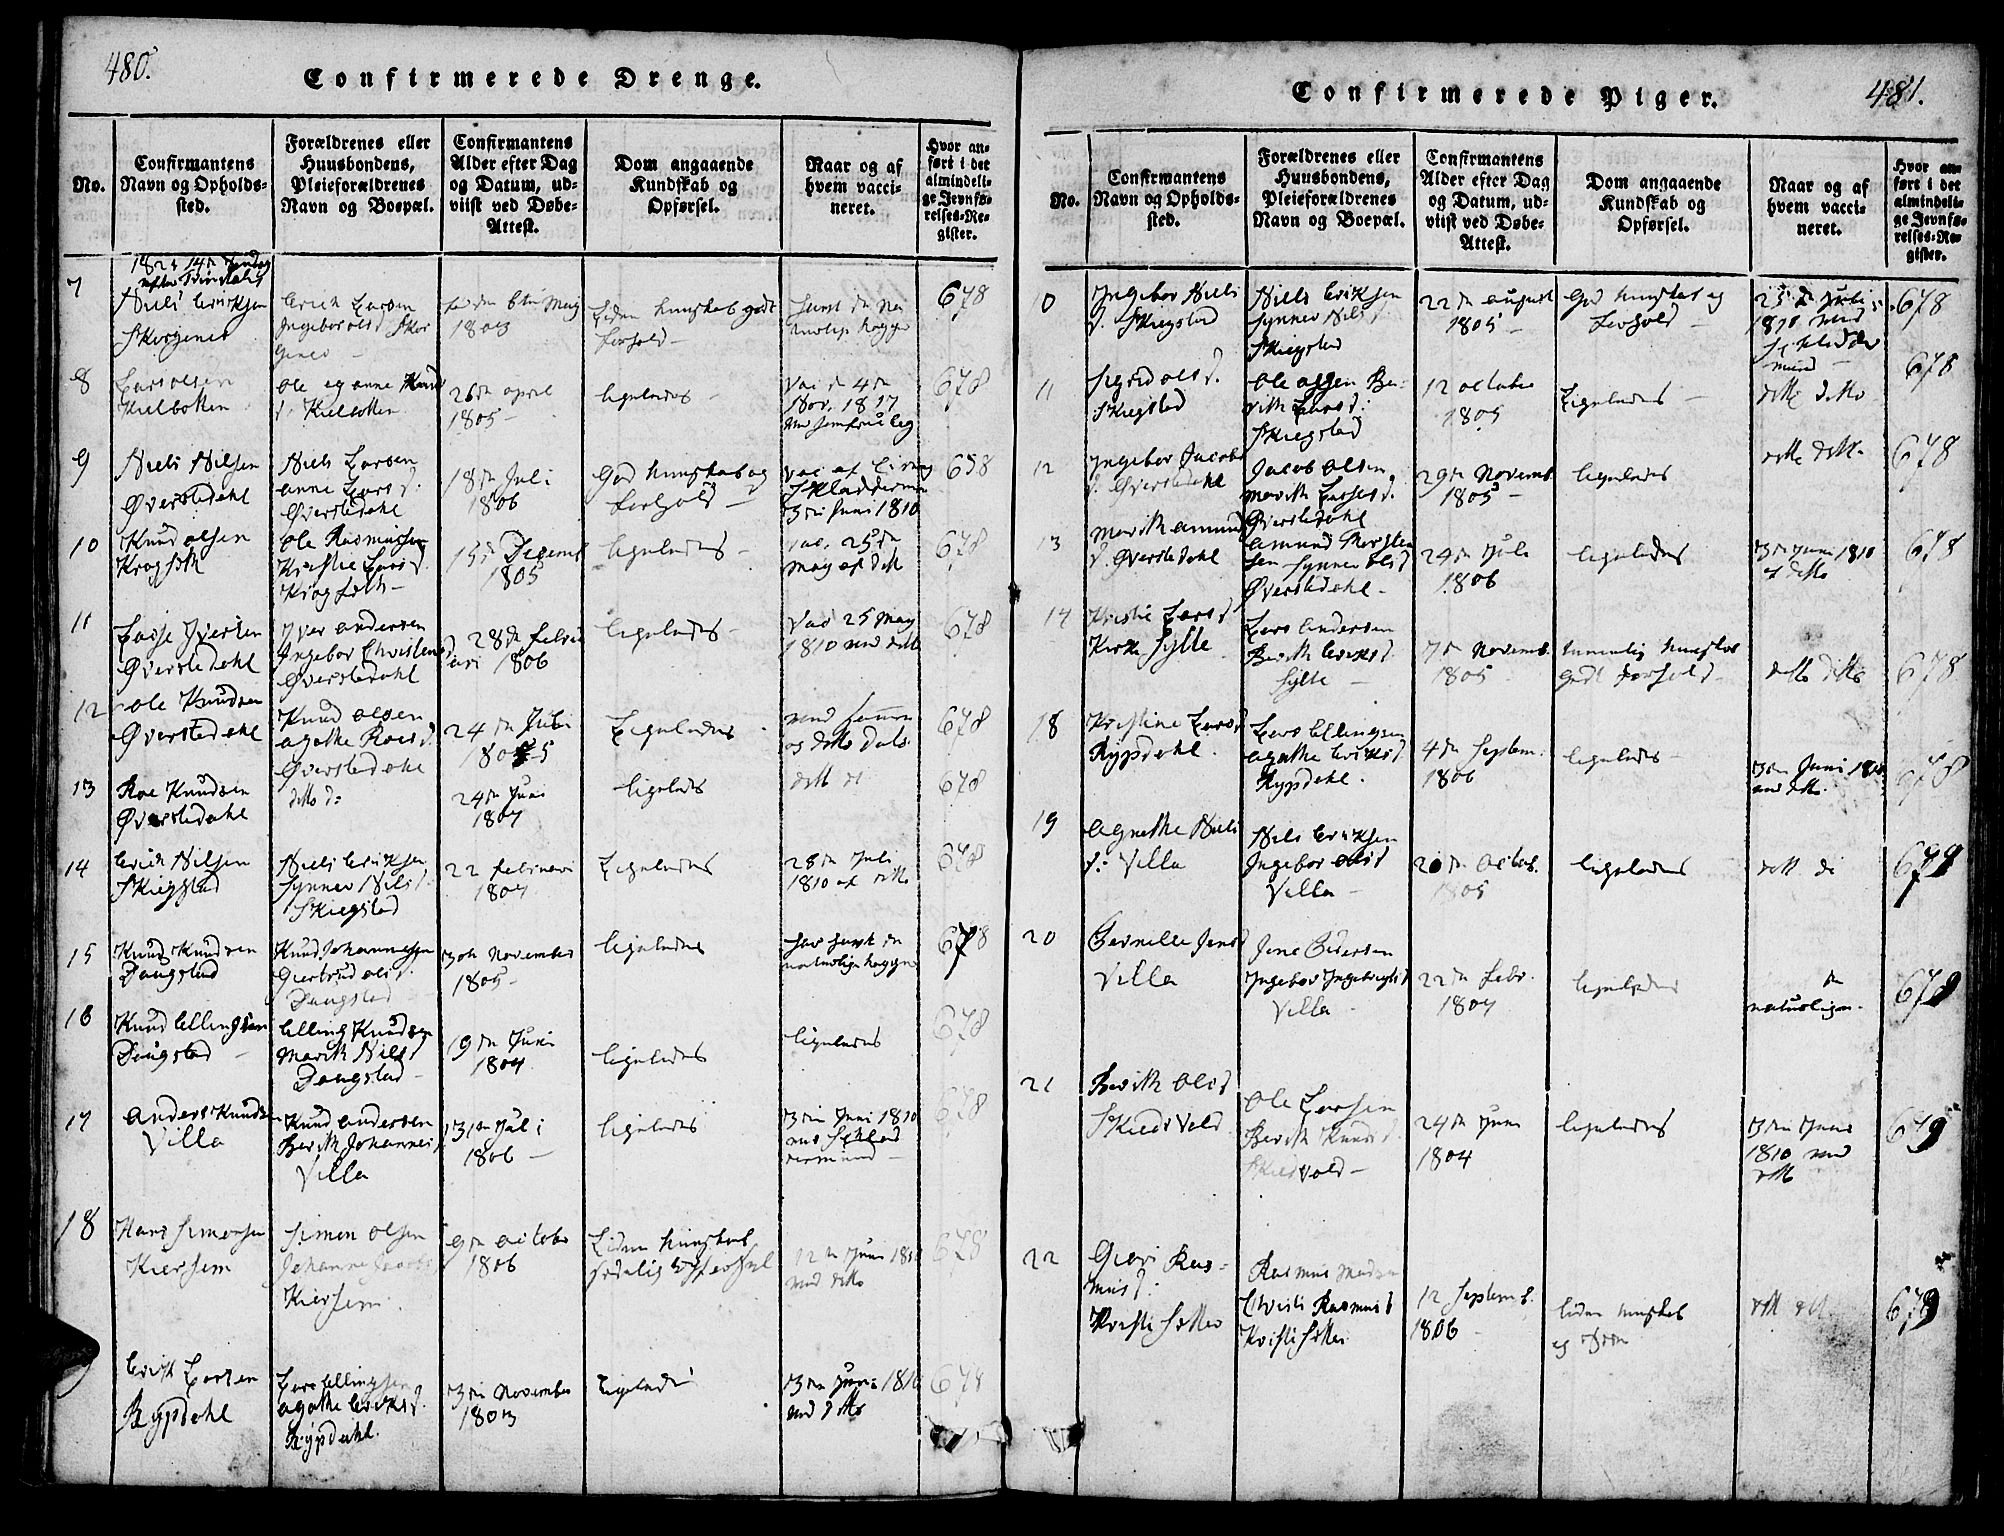 480.
Confirmerede Drenge.
No.
Confirmantens
Navn og Opholds-
sted.
Forældrenes eller
Huusbondens,
Pleieforældrenes
Navn og Boepæl.
Confirmantens
Alder efter Dag
og Datum, ud-
viist ved Døbe-
Attest.
Dom angaaende
Kundskab og
Opførsel.
Naar og af
hvem vacci-
neret.
Hvor an-
ført i det
almindeli-
ge Jevnfø-
relses-Re-
gister.
7
Niels Erichsen
Erich Larsen
Ingebor Olsd
1803
Liden kundskab godt
Forhold
678
8
Lars Olsen
Kielbotten
Ole og Anne Knud
d. Kielbotten
26de April
1805
ligeledes
Vac d 4de
Nov. 1817
678
9
Niels Nilsen
Øverstedahl
Niels Larsen
Anne Larsd:
Øverstedahl
18de Juli
1806
God kundskab og
Forhold
3die Juni 1810
658
10
Knud Olsen
Ole Rasmussen
Kirstie Larsd.
15de Decemb
1805
ligeledes
Vac. 25de
May af dtto
678
11
Lasse Iversen
Øverstedahl
Iver Andersen
Ingebor Christensd
Øverstedahl
28de Febru
ari 1806
ligeledes
Vac 25 May
1810 ved ditto
678
12
Ole Knudsen
Øverstedahl
Knud Olsen
Agathe Roesd.
Øverstedahl
24de Juli
1805
Ligeledes
678
13
Roe Knudsen
Øverstedahl
ditto d:
24de Juni
1807
ligeledes
678
14
Erich Nilsen
Skiegstad
Niels Erichsen
Synnev Nilsd.
Skiegstad
22 Februari
1807
Ligeledes
28de Juli
1810 af ditto
678
15
Knud Knudsen
Daugstad
Knud Johannessen
Giertrud Olsd:
Daugstad
30te November
1805
ligeledes
678
16
Knud Ellingsen
Daugstad
Elling Knudsen
Marith Nilsd
Daugstad
19de Juni
1804
ligeledes
ligeledes
678
17
Anders Knudsen
Villa
Knud Andersen
Berith Johannesd
Villa
31te Juli
1806
ligeledes
3die Juni 1810
678
18
Hans Simonsen
Kiersem
Simen Olsen
Johanne Jacobsd
Kiersem.
9de Octobr
1806
Liden kundskab
12te Juni 1810
ved ditto
678
Erich Larsen
Rypdahl
Lars Ellingsen
Agathe Erichsd.
Rypdahl.
3die November
1803
Ligeledes
3die Juni 1810
ved ditto
678
481.
Confirmerede Piger.
No.
Confirmantens
Navn og Opholds-
sted.
Forældrenes eller
Huusbondens,
Pleieforældrenes
Navn og Boepæl.
Confirmantens
Alder efter Dag
og Datum, ud-
viist ved Døbe-
Attest.
Dom angaaende
Kundskab og
Opførsel.
Naar og af
hvem vacci-
neret.
Hvor an-
ført i det
almindeli-
ge Jevnfø-
relses-Re-
gister.
0
Ingebor Niels
d. Skiegstad
Niels Erichsen
Synnev Nilsd
Skiegstad
22de August
1805
God kundskab og
Forhold
25de Juli
1810 ved
678
11
Sigrid Olsd.
Skiegstad
Ole
Skiegstad
12 Octobr
1805
Ligeledes
ditto ditto
678
12
Ingebor Jacobs
d. Øverstedahl
Jacob Olsen
Marith Larsesd.
Øverstedahl
29de Novemb
1805
ligeledes
ditto ditto
678
13
Marith Amund
d. Øverstedahl
Amund Thorsten
sen Synnev Olsd
Øverstedahl
24de Juli
1806
ligeledes
3die Juni 1810
af ditto
678
14
Kirstie Larsd
Kirke Sylte
Lars Andersen
Berith Erichsd.
Sylte
7de Novemb.
1805
temmelig kundskab
godt Forhold
ditto ditto
678
18
Kristine Larsd
Rypdahl.
Lars Ellingsen
Agathe Erichsd.
Rypdahl.
4de Septem:
1806
ligeledes
3die Juni 1810
ved ditto.
678
19
Agnethe Niels
d: Villa
Nils Erichsen
Ingebor Olsd
Villa
20de Octob.
1805
ligeledes
ditto di
679
20
Pernille Jensd
Villa
Jens Pedersen
Ingebor Ingebrigtsd
Villa
22de Febr.
1807
ligeledes
de
naturligen
678
21
Berith Olsd
Ole Larsen
Berith Knudsd.
24de Juni
1804
ligeledes
3die Juni
1810 ved
ditto
679
22
Giøri Ras-
musd:
Rasmus Madsen
12 Septemb.
1806
Liden kundskab
ditto ditto
679